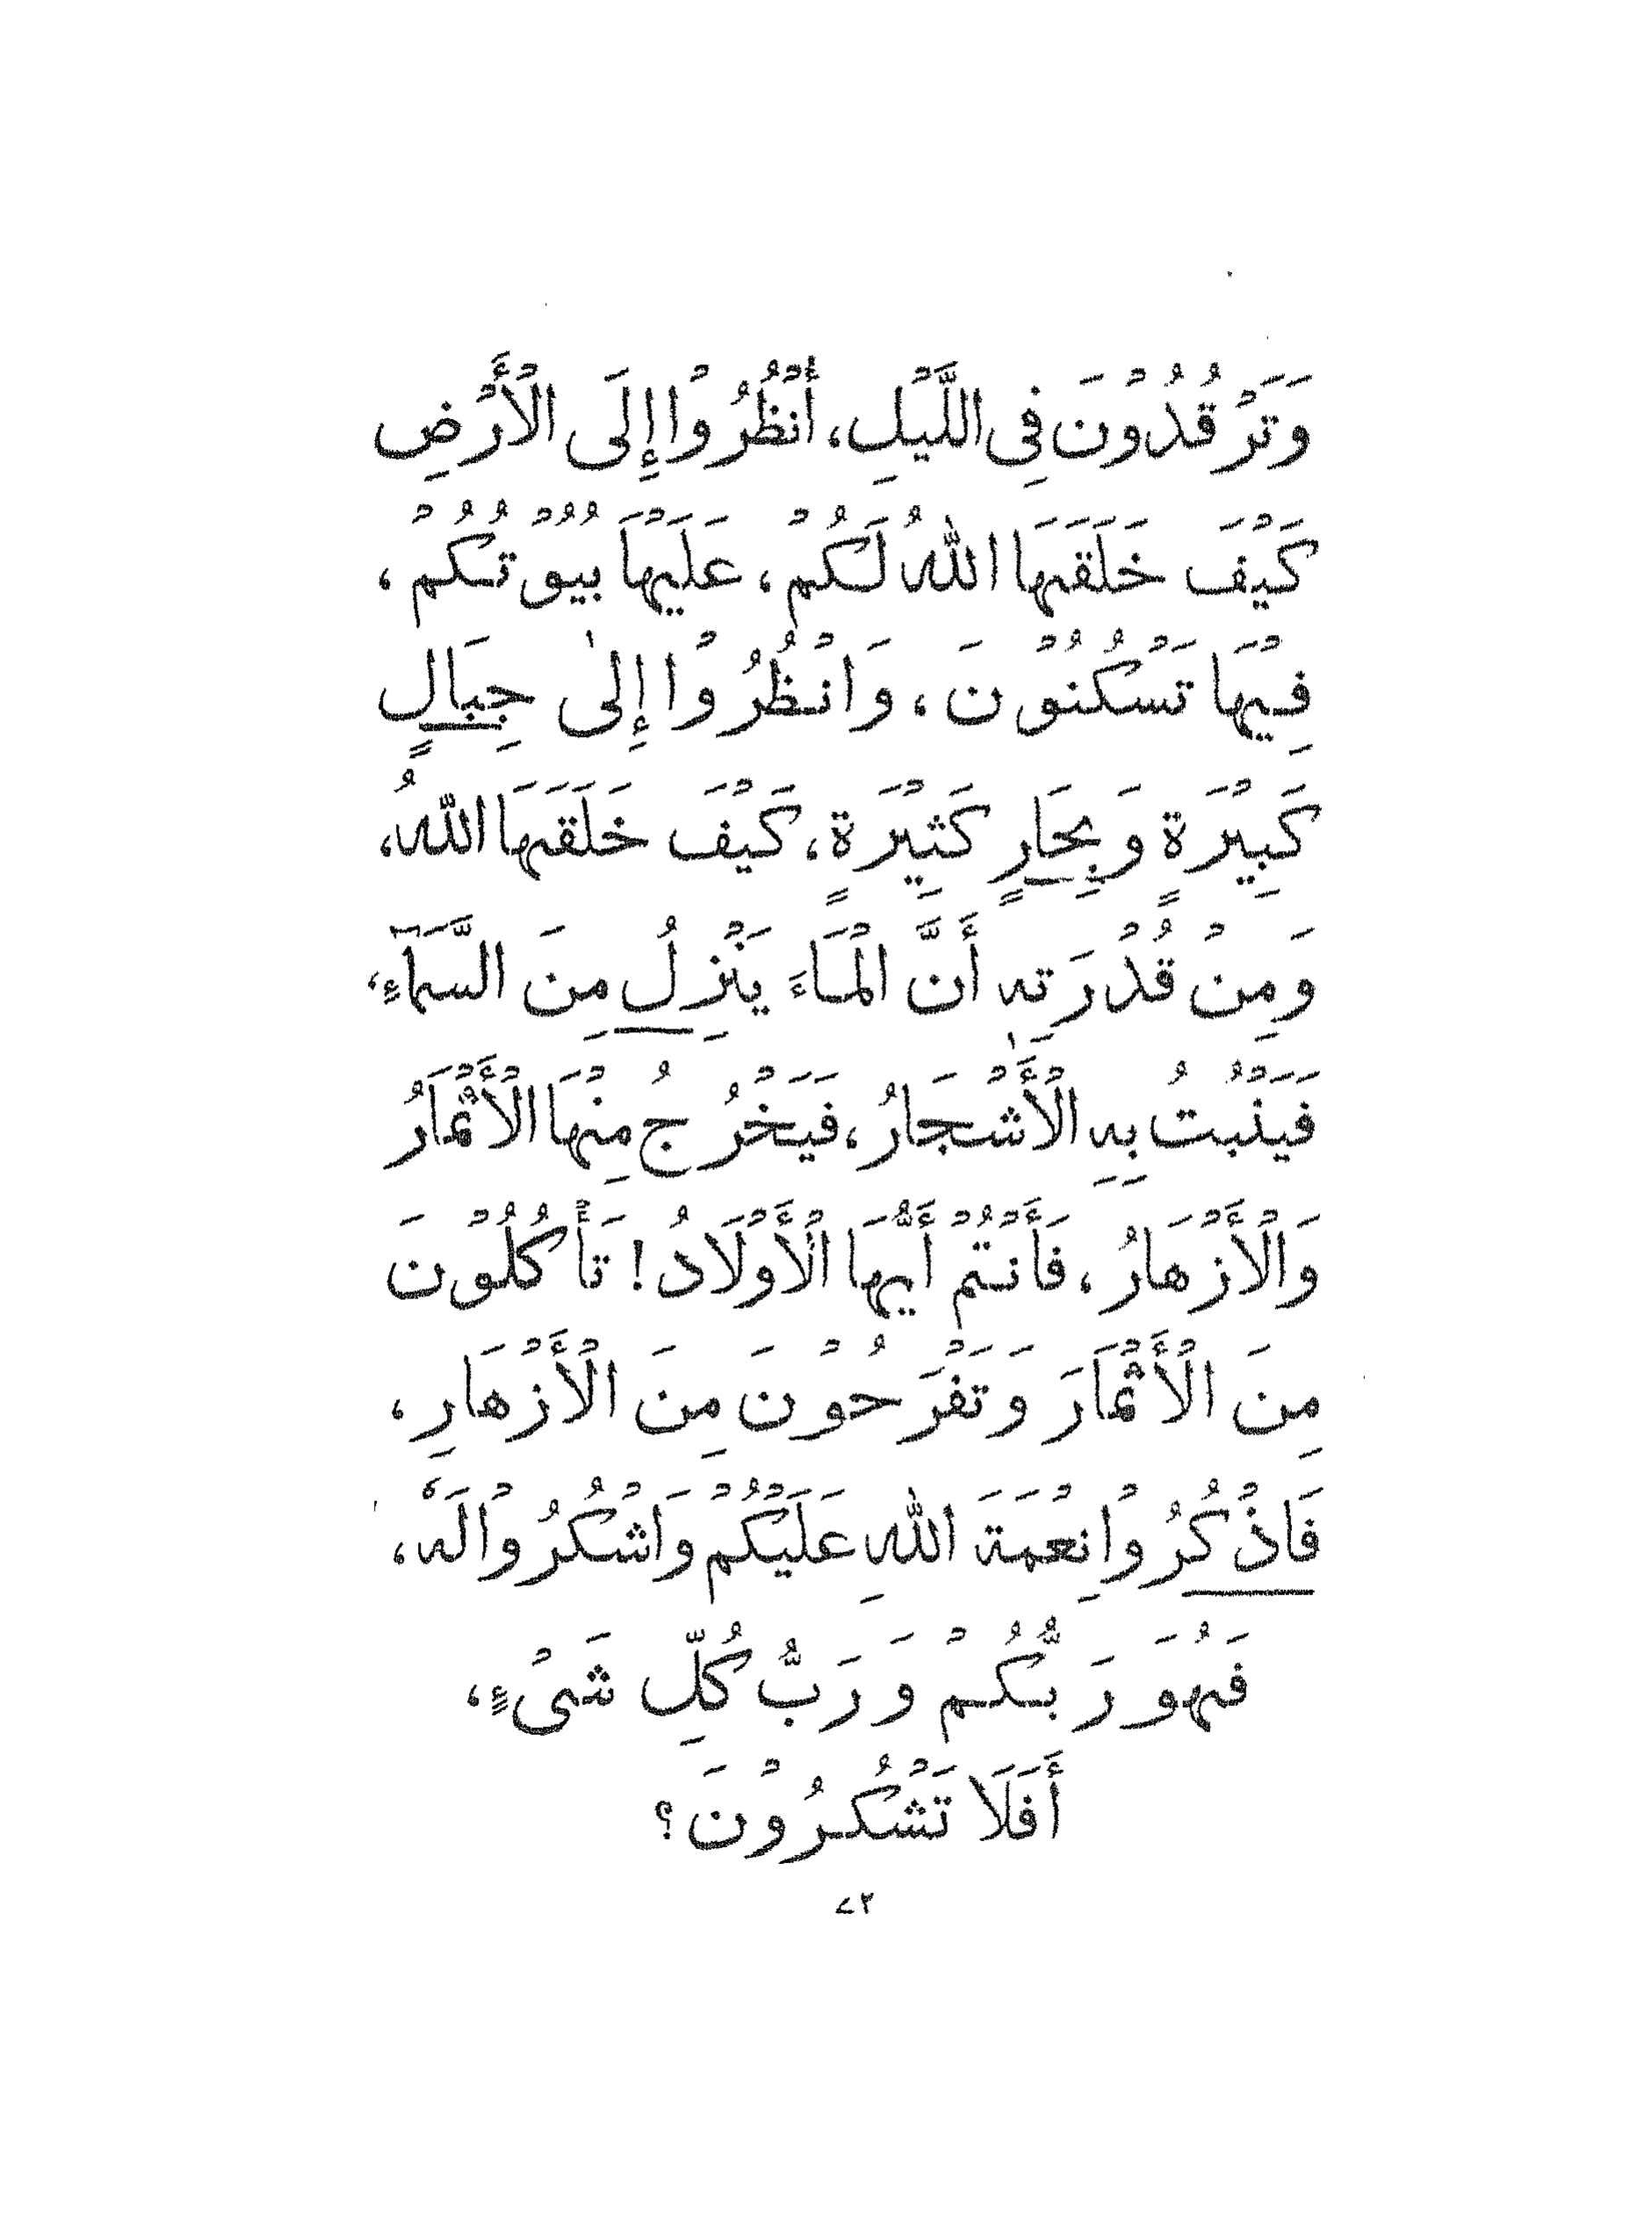 وَتَرْقُدُوْنَ فِي اللَّيْلِ، أُنْظُرُوْا إِلَى الْأَرْضِ
كَيْفَ خَلَقَهَا اللهُ لَكُمْ، عَلَيْهَا بُيُوْتُكُمْ،
فِيْهَا تَسْكُنُوْنَ، وَانْظُرُوْا إِلىٰ جِبَالٍ
كَبِيْرَةٍ وَبِحَارٍ كَثِيْرَةٍ، كَيْفَ خَلَقَهَا اللهُ،
وَمِنْ قُدْرَتِهٖ أَنَّ الْمَاءَ يَنْزِلُ مِنَ السَّمَآءِ،
فَيَنْبُتُ بِهِ الْأَشْجَارُ، فَيَخْرُجُ مِنْهَا الْأَثْمَارُ
وَالْأَزْهَارُ، فَأَنْتُمْ أَيُّهَا الْأَوْلَادُ! تَأْكُلُوْنَ
مِنَ الْأَثْمَارَ وَتَفْرَحُوْنَ مِنَ الْأَزْهَارِ،
فَاذْكُرُوْا نِعْمَةَ اللهِ عَلَيْكُمْ وَاشْكُرُوْا لَهٗ،
فَهُوَ رَبُّكُمْ وَرَبُّ كُلِّ شَىْءٍ،
أَفَلَا تَشْكُرُوْنَ؟
٧٢